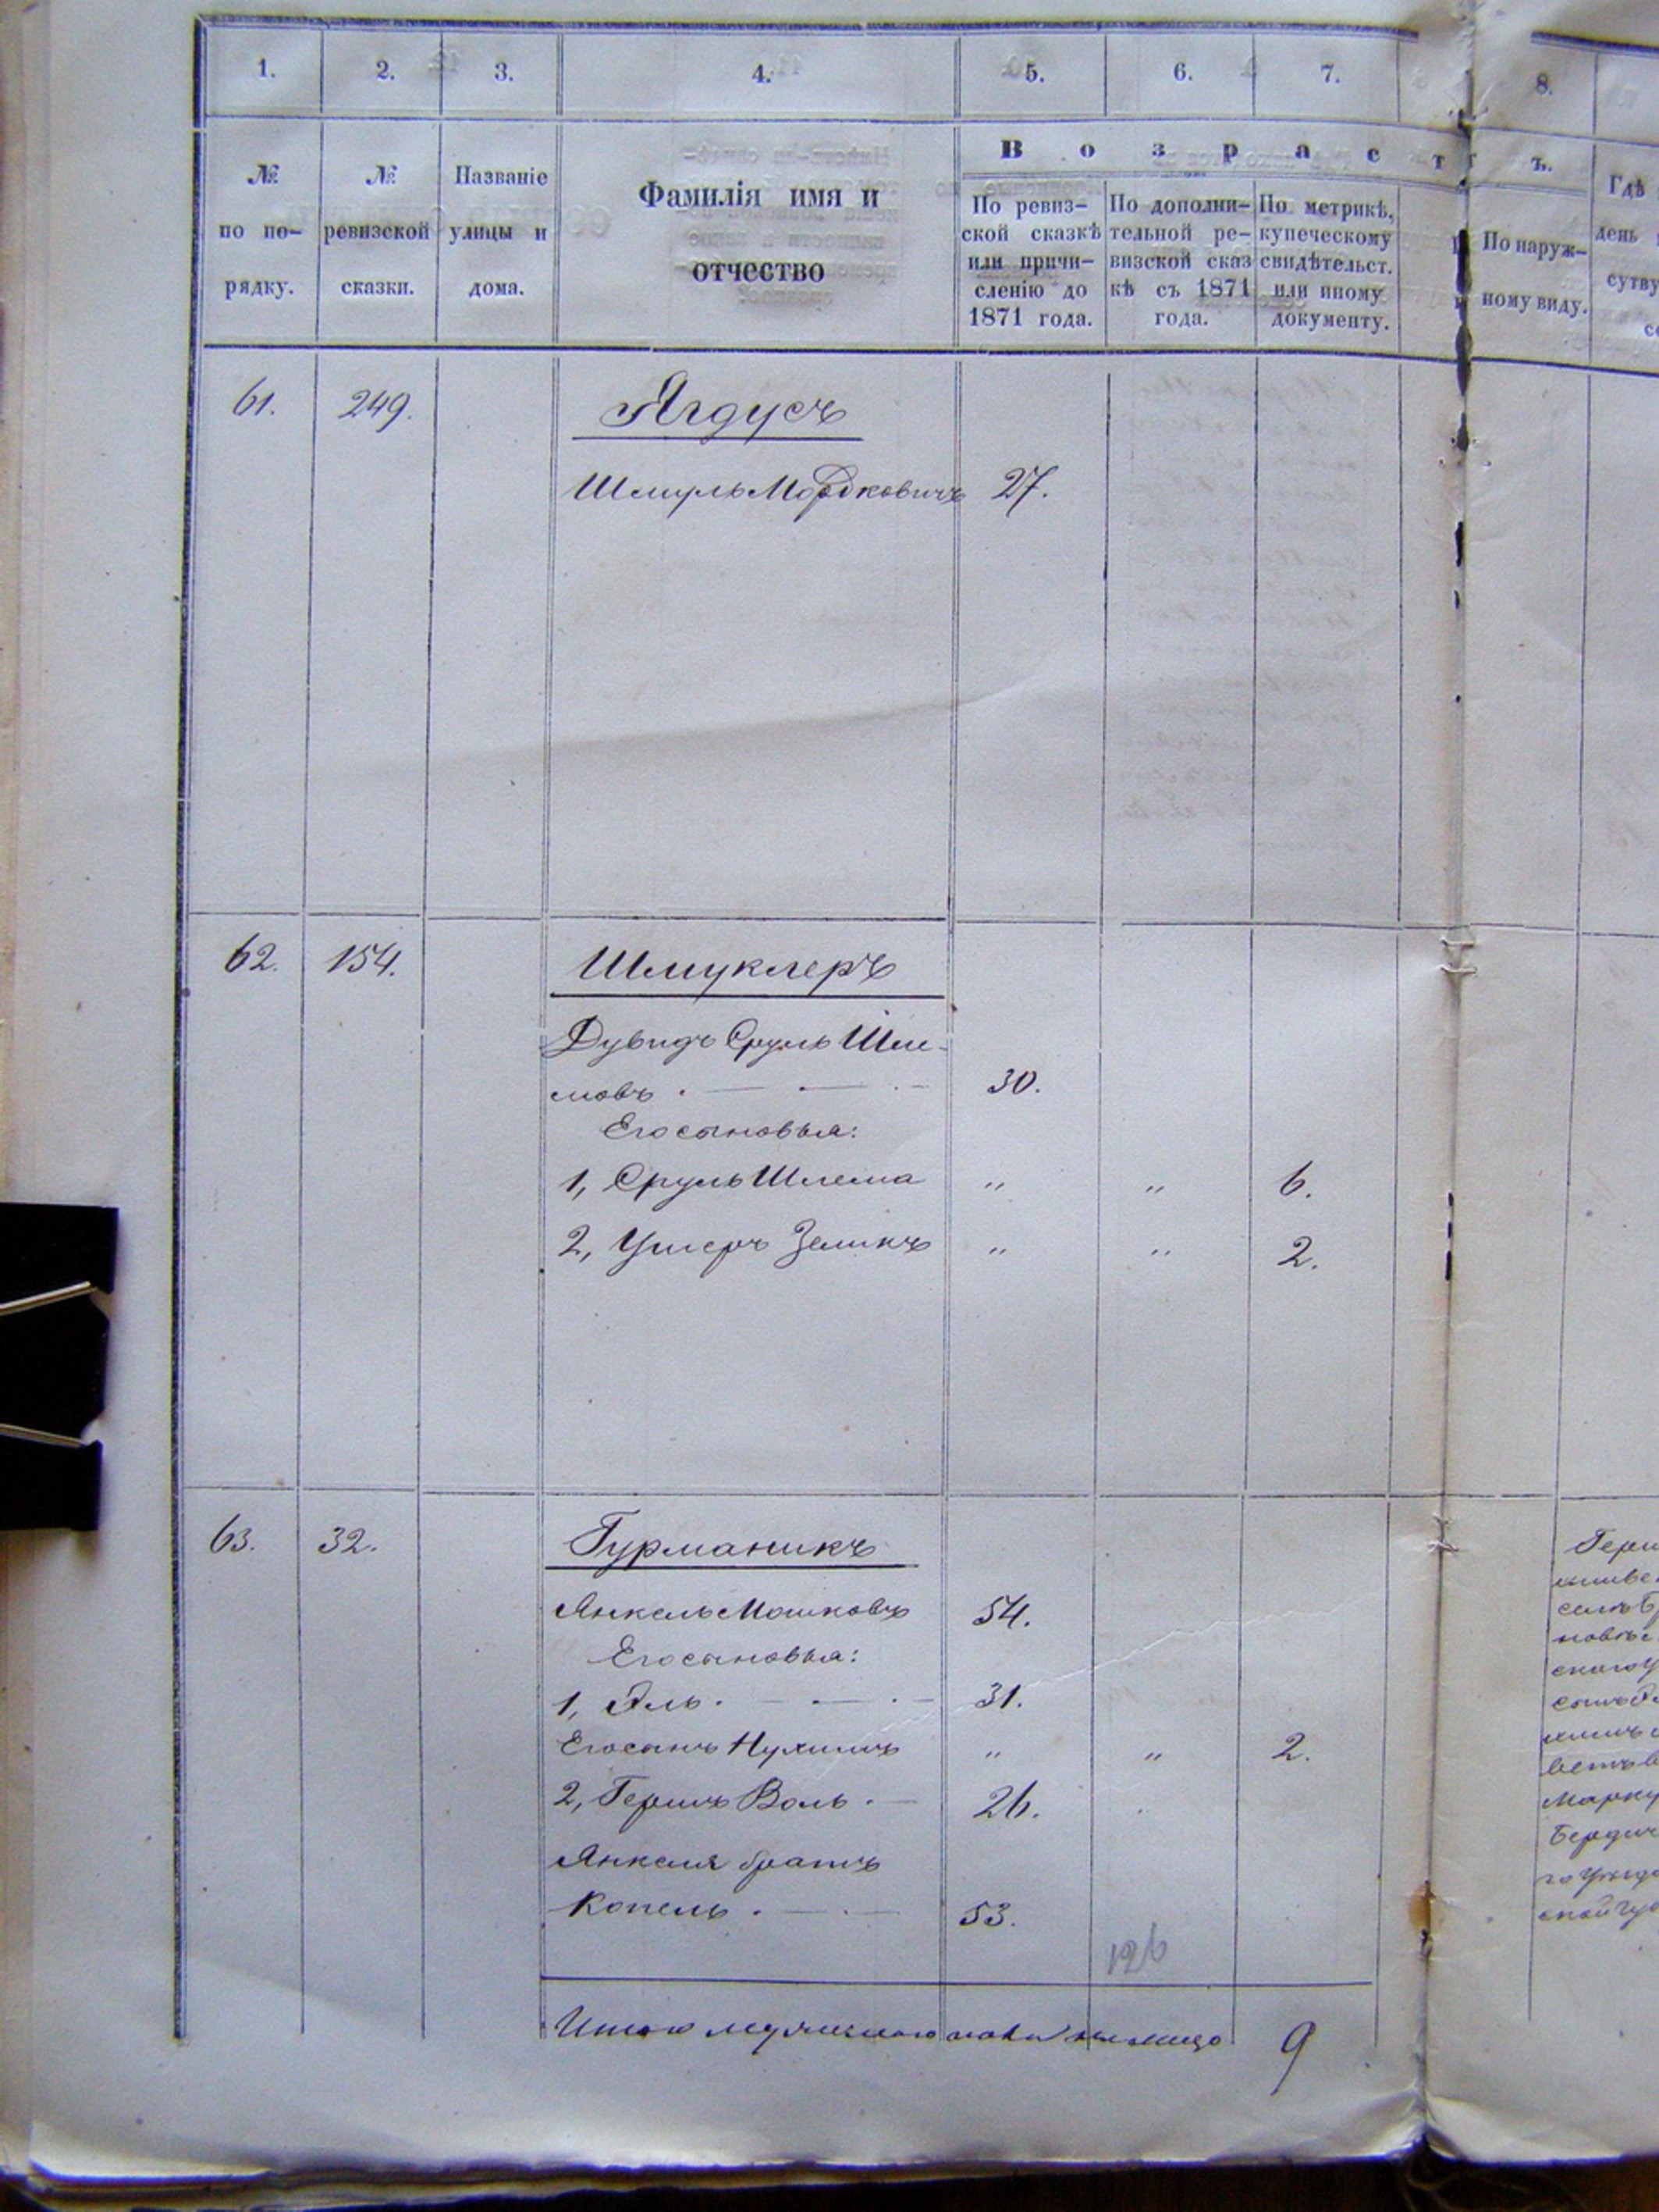 1. 2. 3. 4. 5. 6. 7. 8.
№ по по-рядку.
№ ревизской сказки.
Названіе улицы и дома.
Фамилія имя и отчество
Возрастъ.
По ревиз-
ской сказкѣ
или причи-
сленію до
1871 года.
По дополни-
тельной ре-
визской сказ
кѣ съ 1871
года.
По метрикѣ,
купеческому
свидѣтельст.
или иному
документу.
По наруж-
ному виду.
Гдѣ
день
сутву
61. 249. Ягдусъ
Шмуль Мордковичъ 27.
62. 154. Шмуклеръ
Дувидъ Сруль Шле-
мовъ . — . — 30.
Его сыновья:
1, Сруль Шлема " " 6.
2, Ушеръ Зеликъ " " 2.
63. 32. Гурманикъ
Янкель Мошковъ 54.
Его сыновья:
1, Эль . — . — 31.
Его сынъ Нухимъ " " 2.
2, Гершъ Воль . — 26. "
Янкеля братъ
Копель . — . — 53.
126
Итого мужескаго пола на лицо 9
Герш
Марку
Бердич